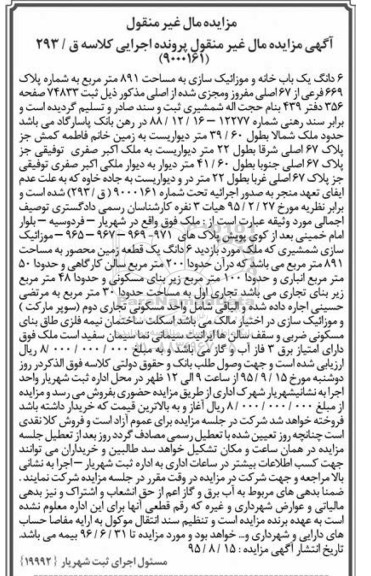 مزایده مال غیر منقول
آگهی مزایده مال غیر منقول پرونده اجرایی کلاسه ق / ۲۹۳
(۹۰۰۰۱۶۱)
۶ دانگ یک باب خانه و موزائیک سازی به مساحت ۸۹۱ متر مربع به شماره پلاک
۶۶۹ فرعی از ۶۷ اصلی مفروز ومجزی شده از اصلی مذکور ذیل ثبت ۷۴۸۳۳ صفحه
۳۵۶ دفتر ۴۳۹ بنام حجت اله شمشیری ثبت و سند صادر و تسلیم گردیده است و
برابر سند رهنی شماره ۱۲۲۷۷ – ۱۶ / ۱۲ / ۸۸ در رهن بانک پاسارگاد می باشد
حدود ملک شمالا بطول ۶۰ / ۳۹ متر دیواریست به زمین خانم فاطمه کمش جز
پلاک ۶۷ اصلی شرقا بطول ۲۲ متر دیواریست به ملک اکبر صفری توفیقی جز
پلاک ۶۷ اصلی جنوبا بطول ۶۰ / ۴۱ متر دیوار به دیوار ملکی اکبر صفری توفیقی
جز پلاک ۶۷ اصلی غربا بطول ۲۲ متر در و دیواریست به جاده خاوه که به علت عدم
ایفای تعهد منجر به صدور اجرائیه تحت شماره ۹۰۰۰۱۶۱ ( ق / ۲۹۳) شده است و
برابر نظریه مورخ ۲۷ / ۲ / ۹۵ هیات ۳ نفره کارشناسان رسمی دادگستری توصیف
اجمالی مورد وثیقه عبارت است از : ملک فوق واقع در شهریار – فردوسیه – بلوار
امام خمینی بعد از کوی پویش پلاک های ۹۷۰ – ۹۶۹ – ۹۶۷ – ۹۶۵ – موزائیک
سازی شمشیری که ملک مورد بازدید ۶ دانگ یک قطعه زمین محصور به مساحت
۸۹۱ متر مربع می باشد که در آن حدودا ۲۰۰ متر مربع سالن کارگاهی و حدودا ۵۰
متر مربع انباری و حدودا ۱۰۰ متر مربع زیر بنای مسکونی و حدودا ۴۸ متر مربع
زیر بنای تجاری می باشد تجاری اول به مساحت حدودا ۳۰ متر مربع به مرتضی
حسینی اجاره داده شده و الباقی شامل واحد مسکونی تجاری دوم (سوپر مارکت )
و موزائیک سازی در اختیار مالک می باشد اسکلت ساختمان نیمه فلزی طاق بنای
مسکونی ضربی و سقف سالن ها ایرانیت سیمانی نما سیمان سفید است ملک فوق
دارای امتیاز برق ۳ فاز آب و گاز می باشد و به مبلغ ۰۰۰ / ۰۰۰ / ۰۰۰ / ۸ ریال
ارزیابی شده است و جهت وصول طلب بانک و حقوق دولتی کلاسه فوق الذکر در روز
دوشنبه مورخ ۱۵ / ۹ / ۹۵ از ساعت ۹ الی ۱۲ ظهر در محل اداره ثبت شهریار واحد
اجرا به نشانیشهریار شهرک اداری از طریق مزایده حضوری بفروش می رسد و مزایده
از مبلغ ۰۰۰ / ۰۰۰ / ۰۰۰ / ۸ ریال آغاز و به بالاترین قیمت که خریدار داشته باشد
فروخته خواهد شد شرکت در جلسه مزایده برای عموم آزاد است و فروش کلا نقدی
است چنانچه روز تعیین شده با تعطیل رسمی مصادف گردد روز بعد از تعطیل جلسه
مزایده در همان ساعت و مکان تشکیل خواهد شد طالبین و خریداران می توانند
جهت کسب اطلاعات بیشتر در ساعات اداری به اداره ثبت شهریار – اجرا به نشانی
بالا مراجعه و جهت شرکت در مزایده در وقت مقرر در جلسه مزایده شرکت نمایند .
ضمنا بدهی های مربوط به آب برق و گاز اعم از حق انشعاب و اشتراک و نیز بدهی
مالیاتی و عوارض شهرداری و غیره که رقم قطعی آنها برای این اداره معلوم نشده
است به عهده برنده مزایده است و تنظیم سند انتقال موکول به ارایه مفاصا حساب
های دارایی و شهرداری و... خواهد بود و مورد مزایده تا ۳۱ / ۶ / ۹۶ بیمه می باشد.
تاریخ انتشار آگهی مزایده : ۱۵ / ۸ / ۹۵
مسئول اجرای ثبت شهریار (۱۹۹۹۲)